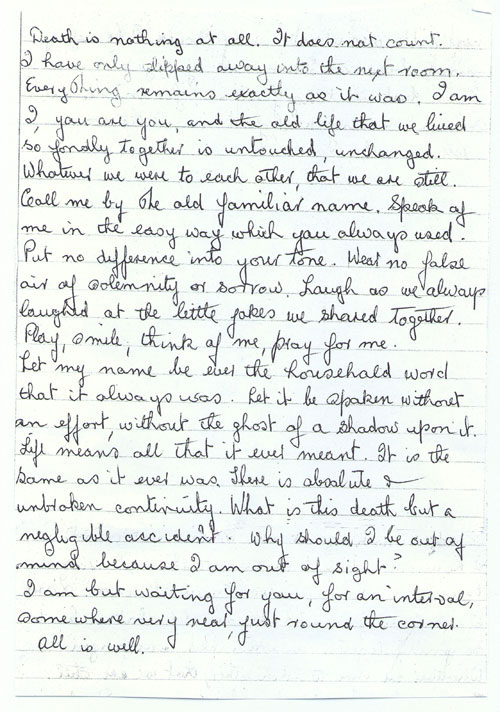 Death is nothing at all. It does not count.
I have only slipped away into the next room.
Everything remains exactly as it was. I am
I, you are you, and the old life that we lived
so fondly together is untouched, unchanged.
Whatever we were to each other, that we are still.
Call me by the old familiar name. Speak of
me in the easy way which you always used.
Put no difference into your tone. Wear no false
air of solemnity or sorrow. Laugh as we always
laughed at the little jokes we shared together.
Play, smile, think of me, pray for me.
Let my name be ever the household word
that it always was. Let it be spoken without
an effort, without the ghost of a shadow upon it.
Life means all that it ever meant. It is the
same as it ever was. There is absolute &
unbroken continuity. What is this death but a
negligible accident. Why should I be out of
mind because I am out of sight?
I am but waiting for you, for an interval,
somewhere very near, just round the corner.
All is well.